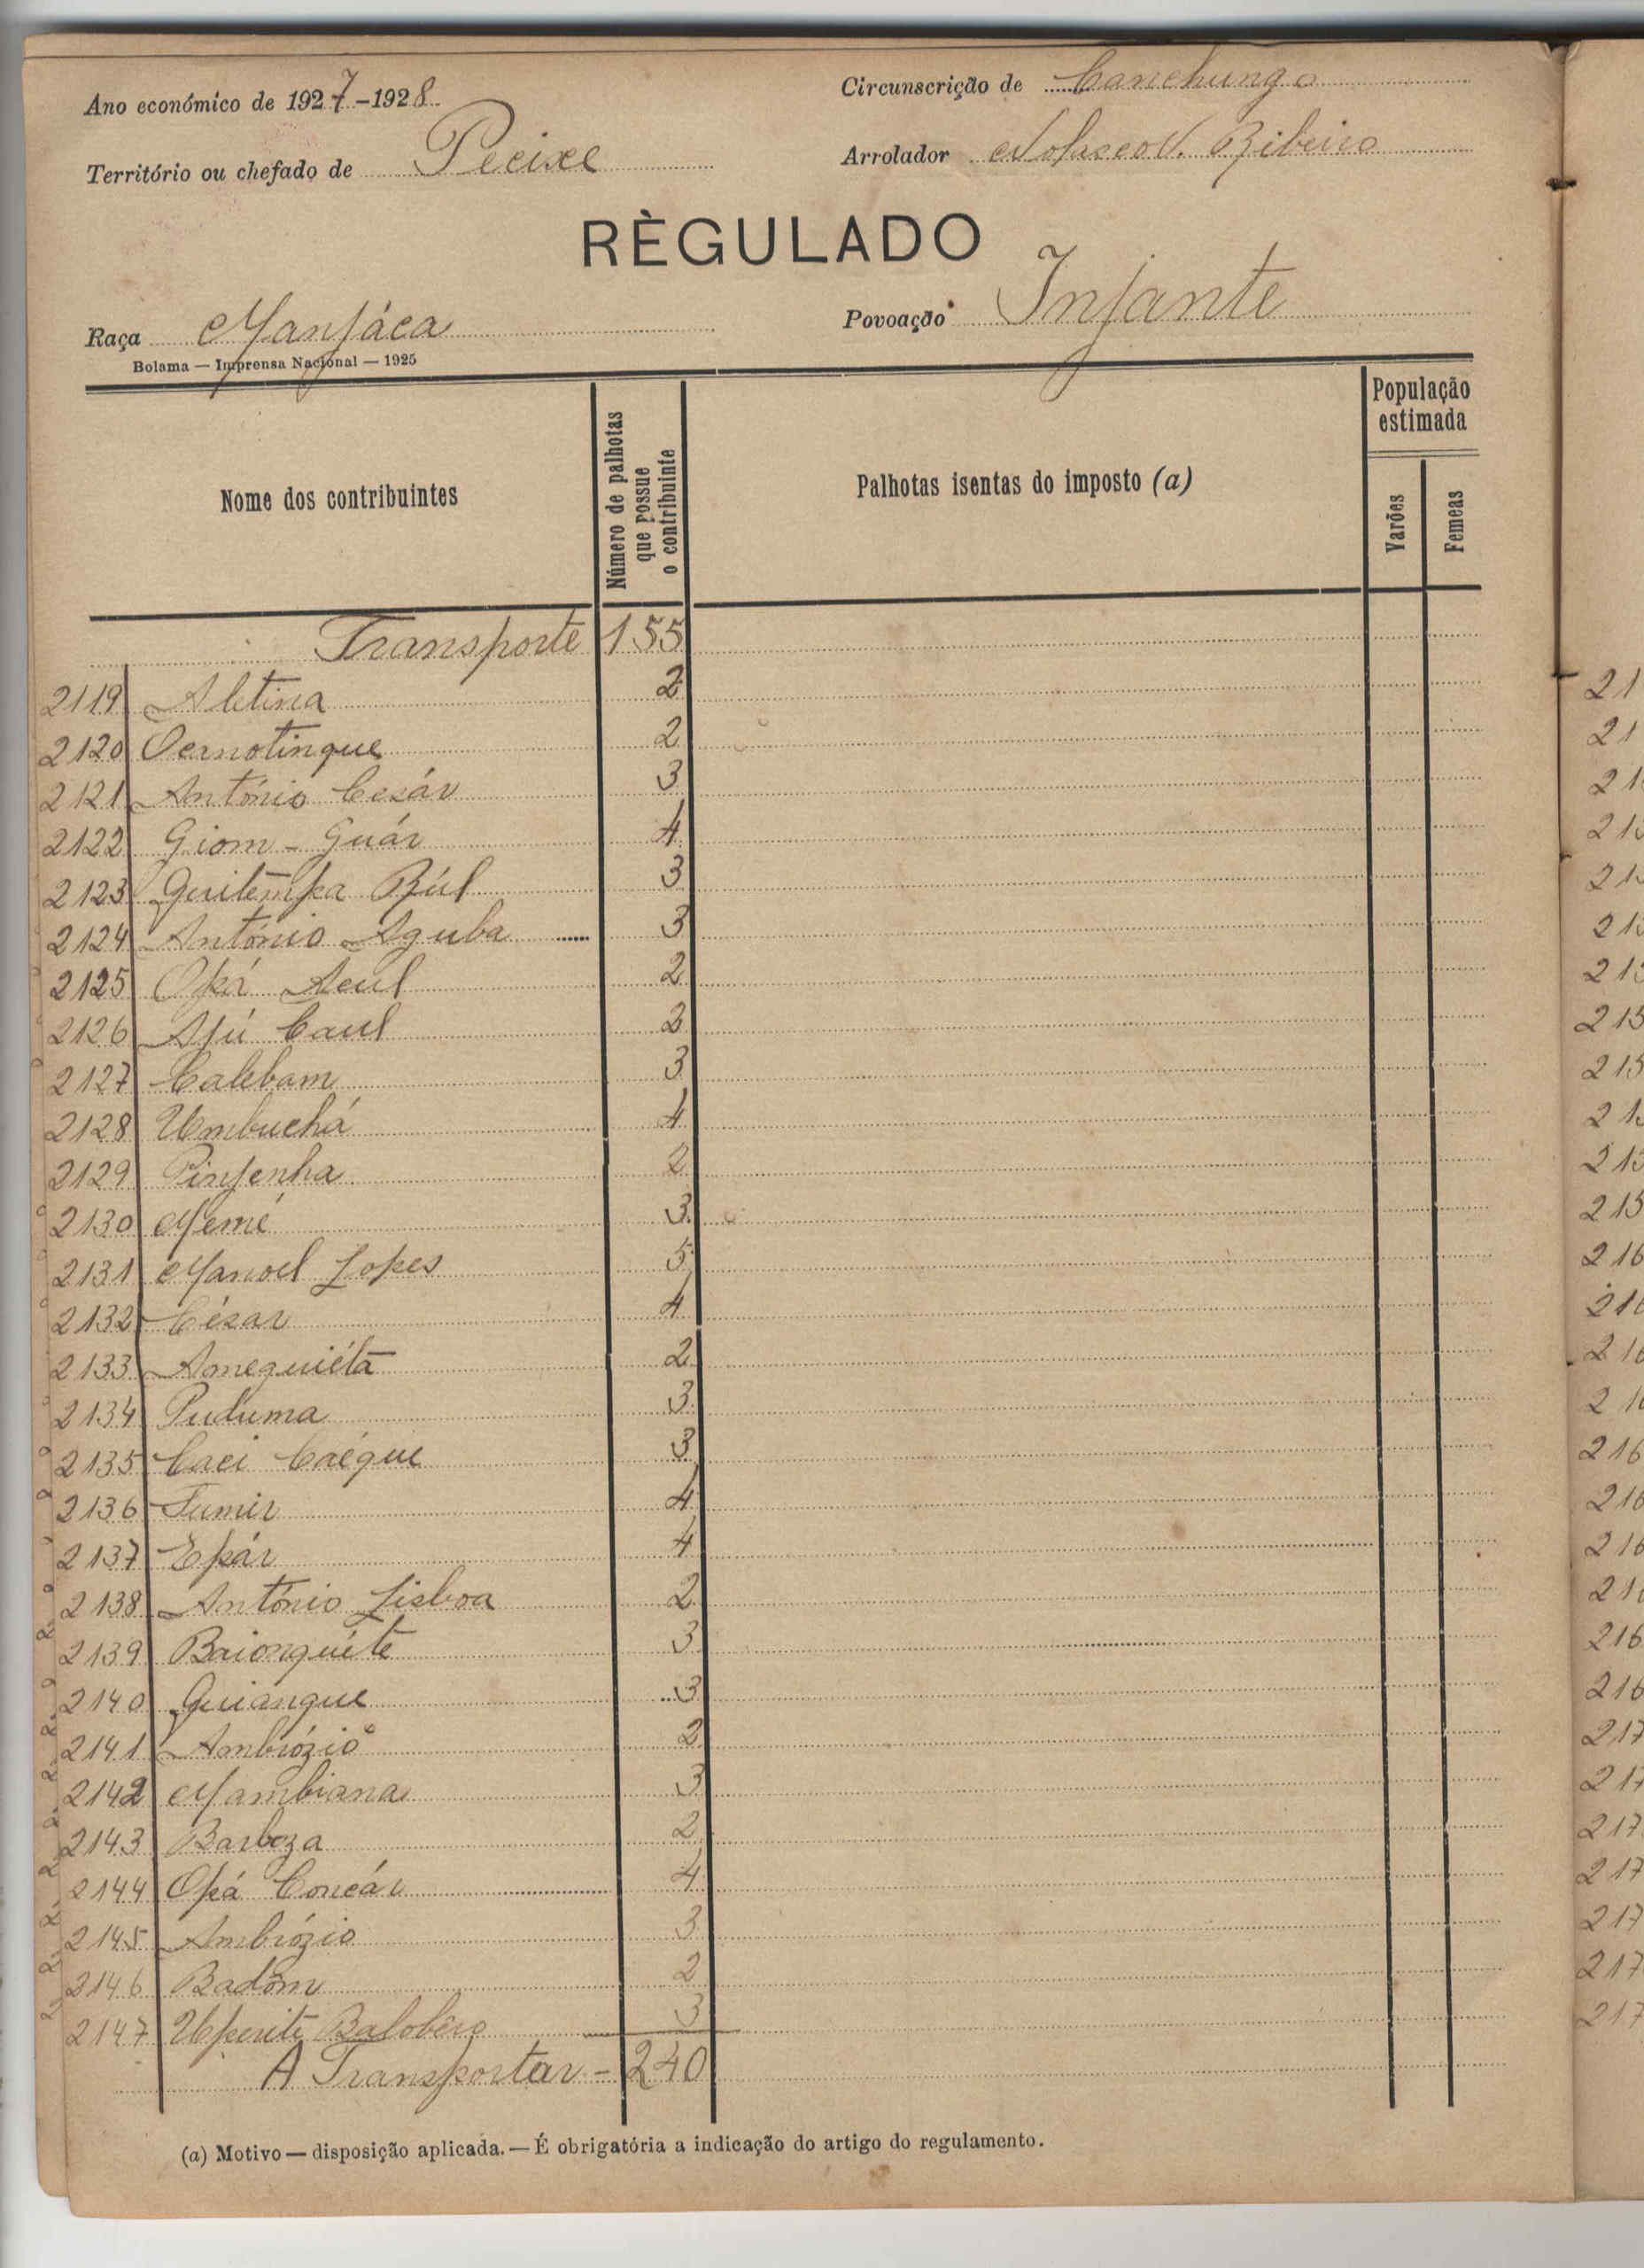 Ano económico de 1927-1928
Circunscrição de Canchungo
Território ou chefado de Pecixe
Arrolador Nolasco V. Ribeiro
RÈGULADO
Raça Manjáca
Povoação Infante
Bolama — Imprensa Nacional — 1925
Nome dos contribuintes
Número de palhotas que possue o contribuinte
Palhotas isentas do imposto (a)
População estimada
Varões
Femeas
Transporte 155
2119 Aletina 2
2120 Oernotinque 2
2121 António Cesár 3
2122 Giom - Guár 4
2123 Quitempa Búl 3
2124 António Aguba 3
2125 Opá Acul 2
2126 Ajú Caul 2
2127 Calebam 3
2128 Umbuchá 4
2129 Pinjenha 2
2130 Memé 3
2131 Manoel Lopes 5
2132 Cézar 4
2133 Amequiéta 2
2134 Puduma 3
2135 Caei Caégue 3
2136 Tumir 4
2137 Epár 4
2138 António Lisboa 2
2139 Baionguéte 3
2140 Quiangue 3
2141 Ambrózio 2
2142 Mambiana 3
2143 Barboza 2
2144 Opá Concár 4
2145 Ambrózio 3
2146 Badôm 2
2147 Uperite Balobeio 3
A Transportar - 240
(a) Motivo — disposição aplicada. — É obrigatória a indicação do artigo do regulamento.